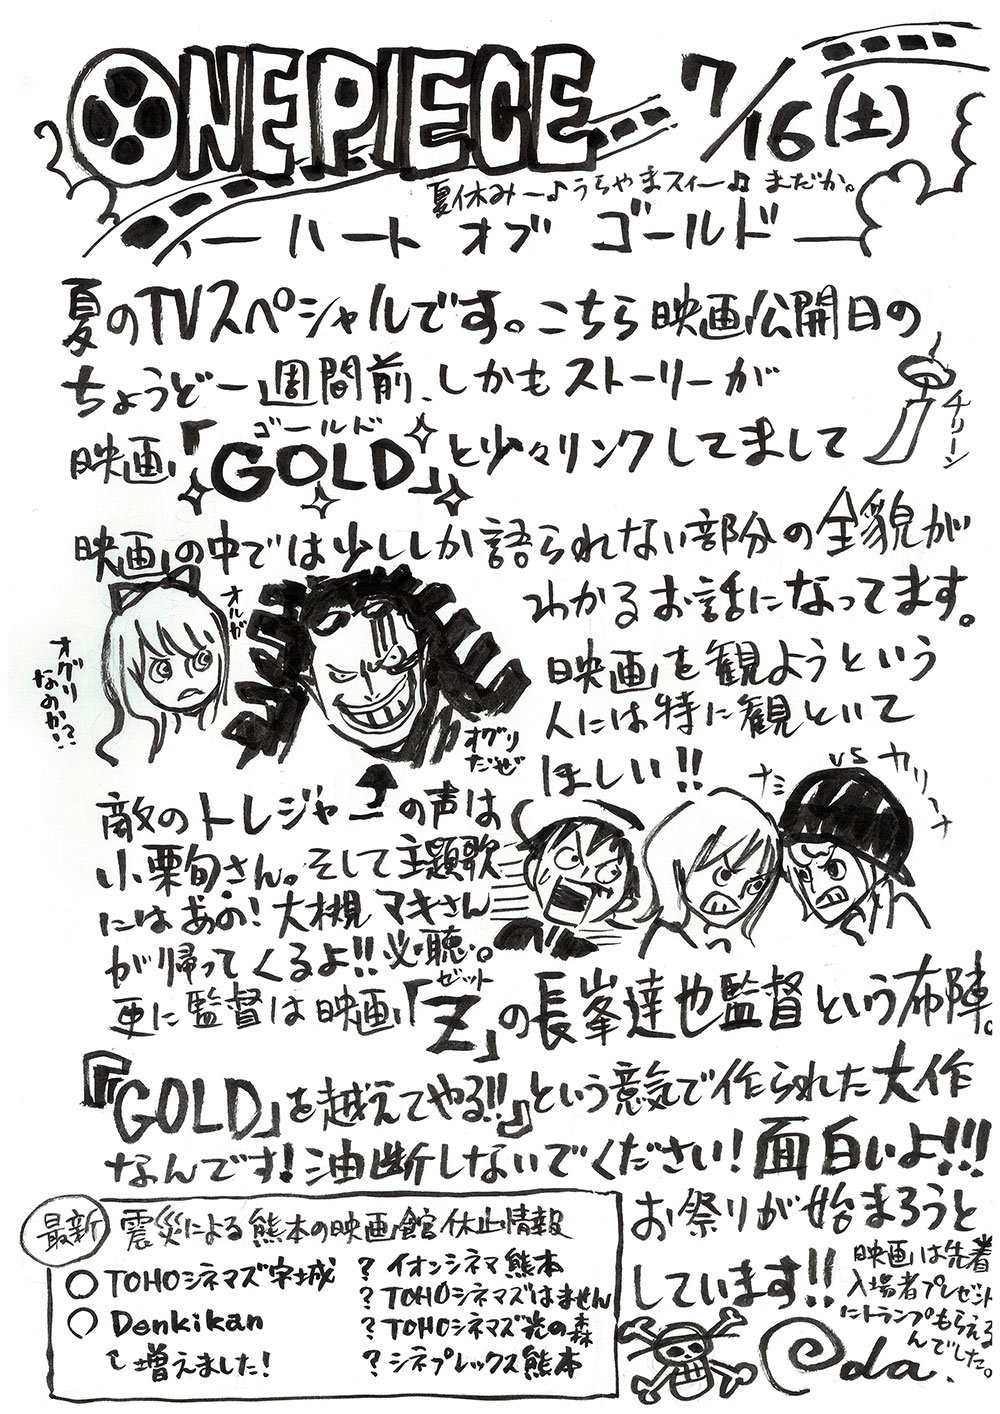 ONE PIECE 7/16(土)
夏休み〜♪うちやまスィー♫まだか。
―ハート オブ ゴールド―
夏のTVスペシャルです。こちら映画公開日の
ちょうど一週間前、しかもストーリーが
チリーン
ゴールド
映画「GOLD」と少々リンクしてまして
映画の中では少ししか語られない部分の全貌が
わかるお話になってます。
オルガ
オグリなのか?!!
オグリだぜ
映画を観ようという
人には特に観といて
ほしい!!
ナミ vs カリーナ
敵のトレジャーの声は
小栗旬さん。そして主題歌
にはあの!大槻マキさん
が帰ってくるよ!!必聴。
ゼット
更に監督は映画「Z」の長峯達也監督という布陣。
『「GOLD」を越えてやる!!』という意気で作られた大作
なんです!油断しないでください!面白いよ!!!
お祭りが始まろうと
しています!!
映画は先着
入場者プレゼント
にトランプもらえる
んでした。
最新 震災による熊本の映画館休止情報
○TOHOシネマズ宇城
○Denkikan
↳増えました!
?イオンシネマ熊本
?TOHOシネマズはません
?TOHOシネマズ光の森
?シネプレックス熊本
Oda.